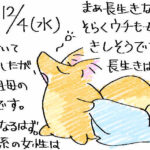 12/4(水)
いて
したが、
母の
です。
なるはず。
系の女性は
まあ長生きな
そらくウチもと
きしそうでい
長生き